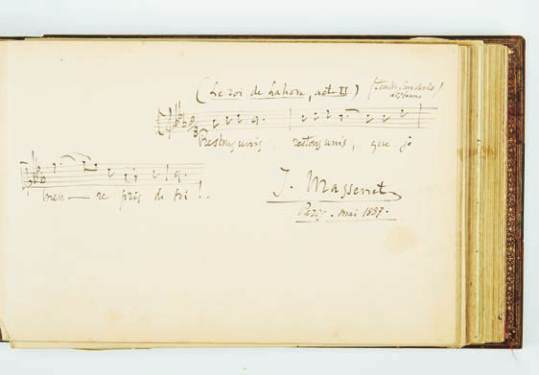 (Le roi de Lahore, act II)
Restons unis, restons unis, que je
meu — re près de toi !..
J. Massenet
Paris. mai 1897.